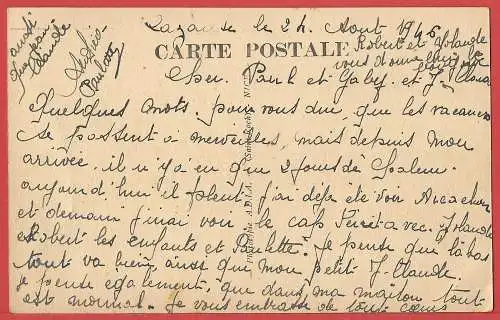 le 24 Août 1946
CARTE POSTALE
Robert et Yolande
vous
Cher Paul et Gaby et J-Claude
Quelques mots pour vous dire que les vacances
se passent à merveilles, mais depuis mon
arrivée il n'y a eu que 2 jours de chaleur
aujourd'hui il pleut. J'ai déjà été voir Arcachon
et demain j'irai voir le cap Ferret avec Yolande
Robert les enfants et Paulette. Je pense que là bas
tout va bien, ainsi que mon petit J-Claude.
Je pense également, que dans ma maison tout
est normal. Je vous embrasse de tout cœur